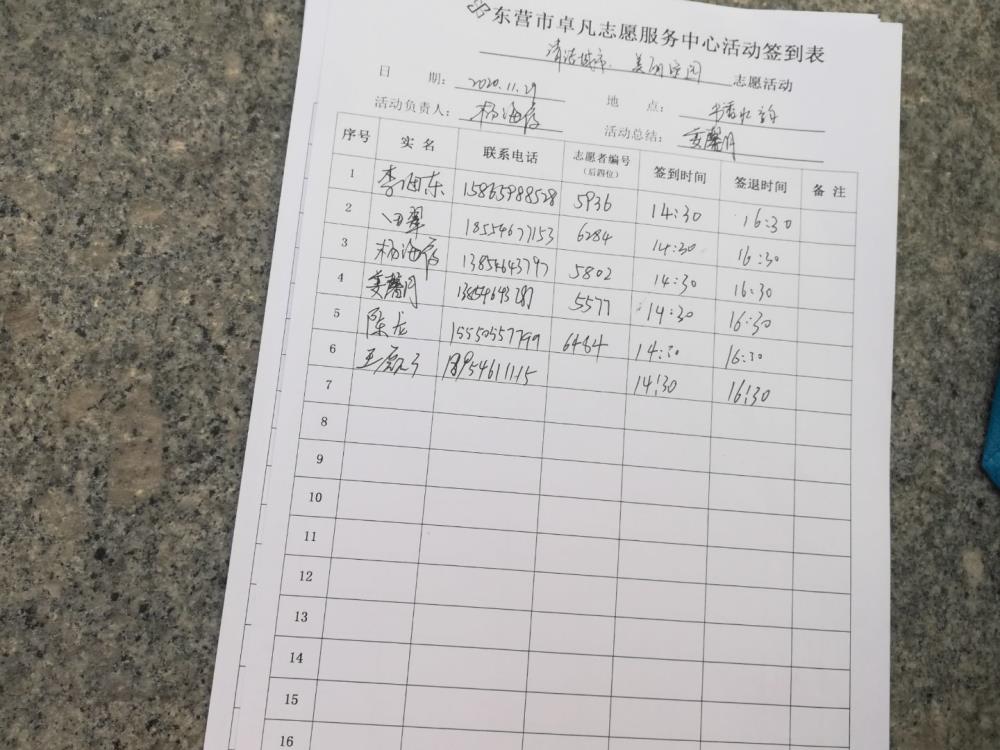 东营市卓凡志愿服务中心活动签到表
清洁城市 美丽家园 志愿活动
日 期: 2020.11.29 地 点:
活动负责人: 杨海存 活动总结: 姜馨月
序号 实名 联系电话 志愿者编号(后四位) 签到时间 签退时间 备注
1 李 东 15865988528 5936 14:30 16:30
2 田翠 18554677153 6284 14:30 16:30
3 杨海存 13854643797 5802 14:30 16:30
4 姜馨月 5577 14:30 16:30
5 陈龙 15550557799 6464 14:30 16:30
6 王 18954611115 14:30 16:30
7
8
9
10
11
12
13
14
15
16